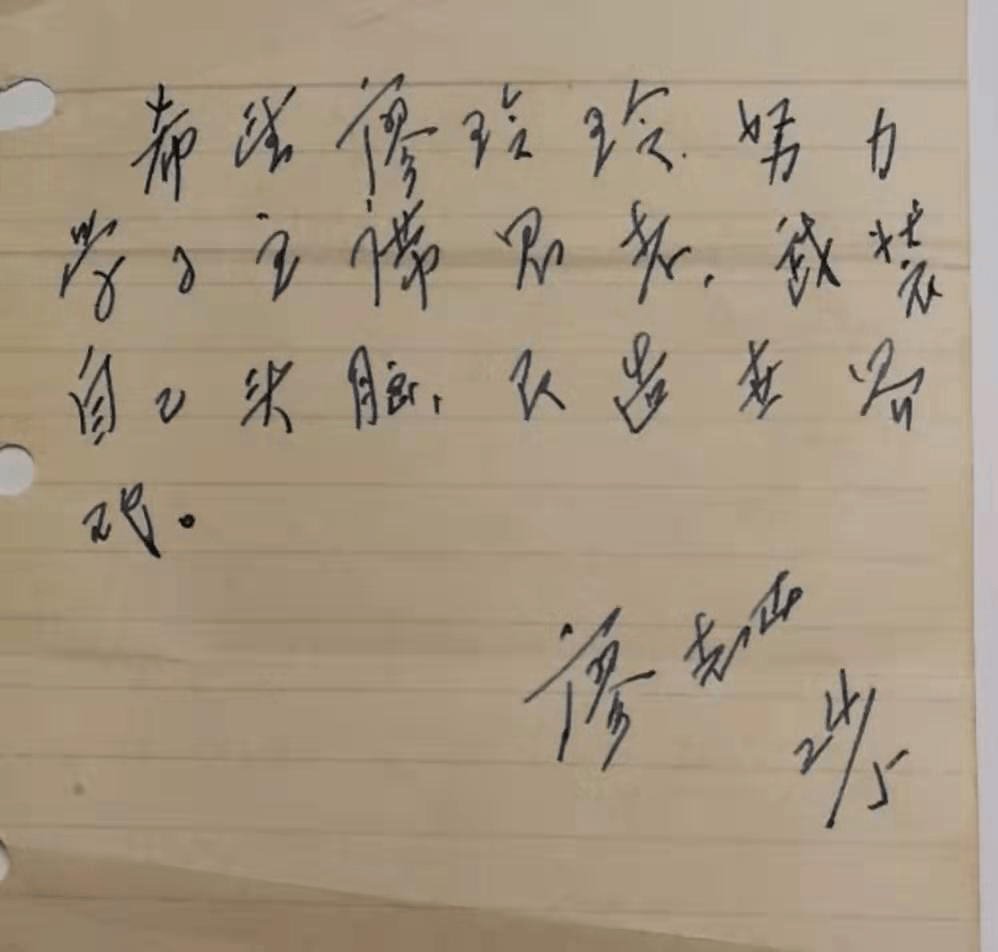 希望廖玲玲努力
学习主席思想，武装
自己头脑，改造世界
观。
廖志高
24/5